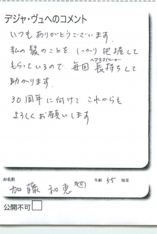 デジャ・ヴュへのコメント
いつもありがとうございます。
私の髪のことを しっかり把握して
もらっているので 毎回 長持ちして
助かります。
30周年に向けて これからも
よろしくお願いします
お名前 加藤 初恵 年齢 45
公開不可